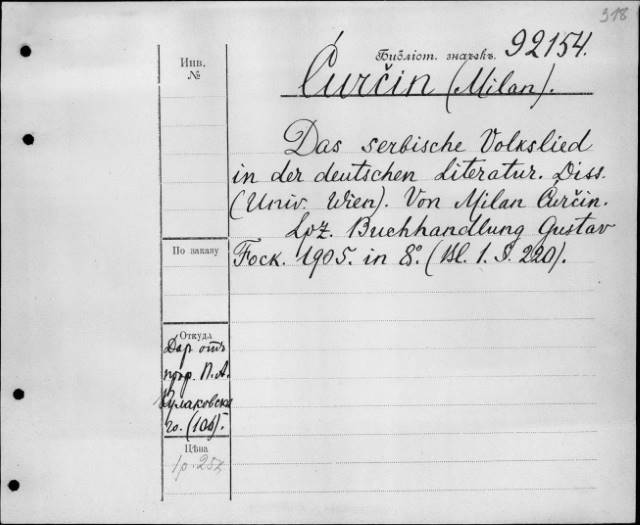 318
Инв.
№
Библіот. значекъ. 92154.
Ćurčin (Milan).
Das serbische Volkslied
in der deutschen Literatur. Diss.
(Univ. Wien). Von Milan Ćurčin.
Lpz. Buchhandlung Gustav
Fock. 1905. in 8º. (Bl. 1. S. 220).
По заказу
Откуда
Даръ отъ
проф. П. А.
Кулаковска
го. (106).
Цѣна
1р. 25к